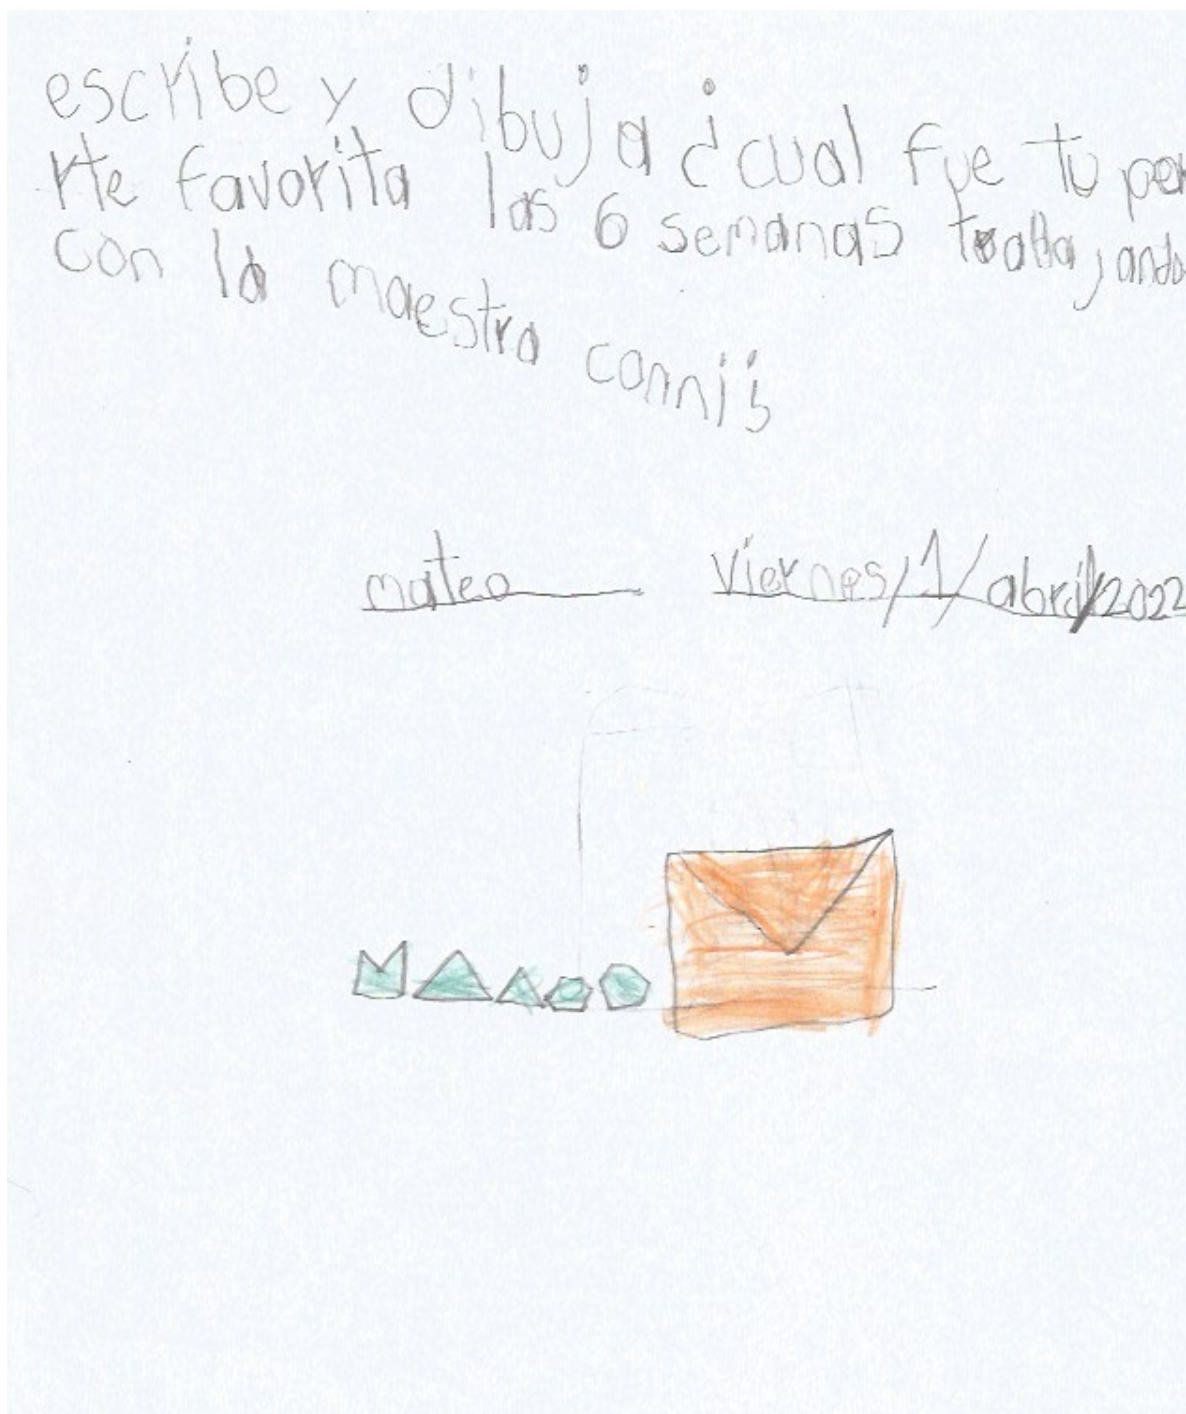 escribe y dibuja ¿cual fue tu par
rte favorita las 6 semanas trabajando
con la maestra connis
mateo viernes/1/abril/2022